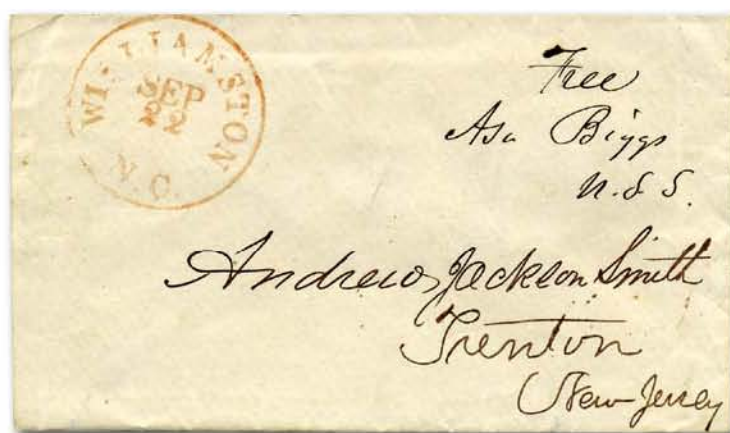 WILLIAMSTON
SEP
22
N.C.
Free
Asa Biggs
U.S S.
Andrew Jackson Smith
Trenton
New Jersey